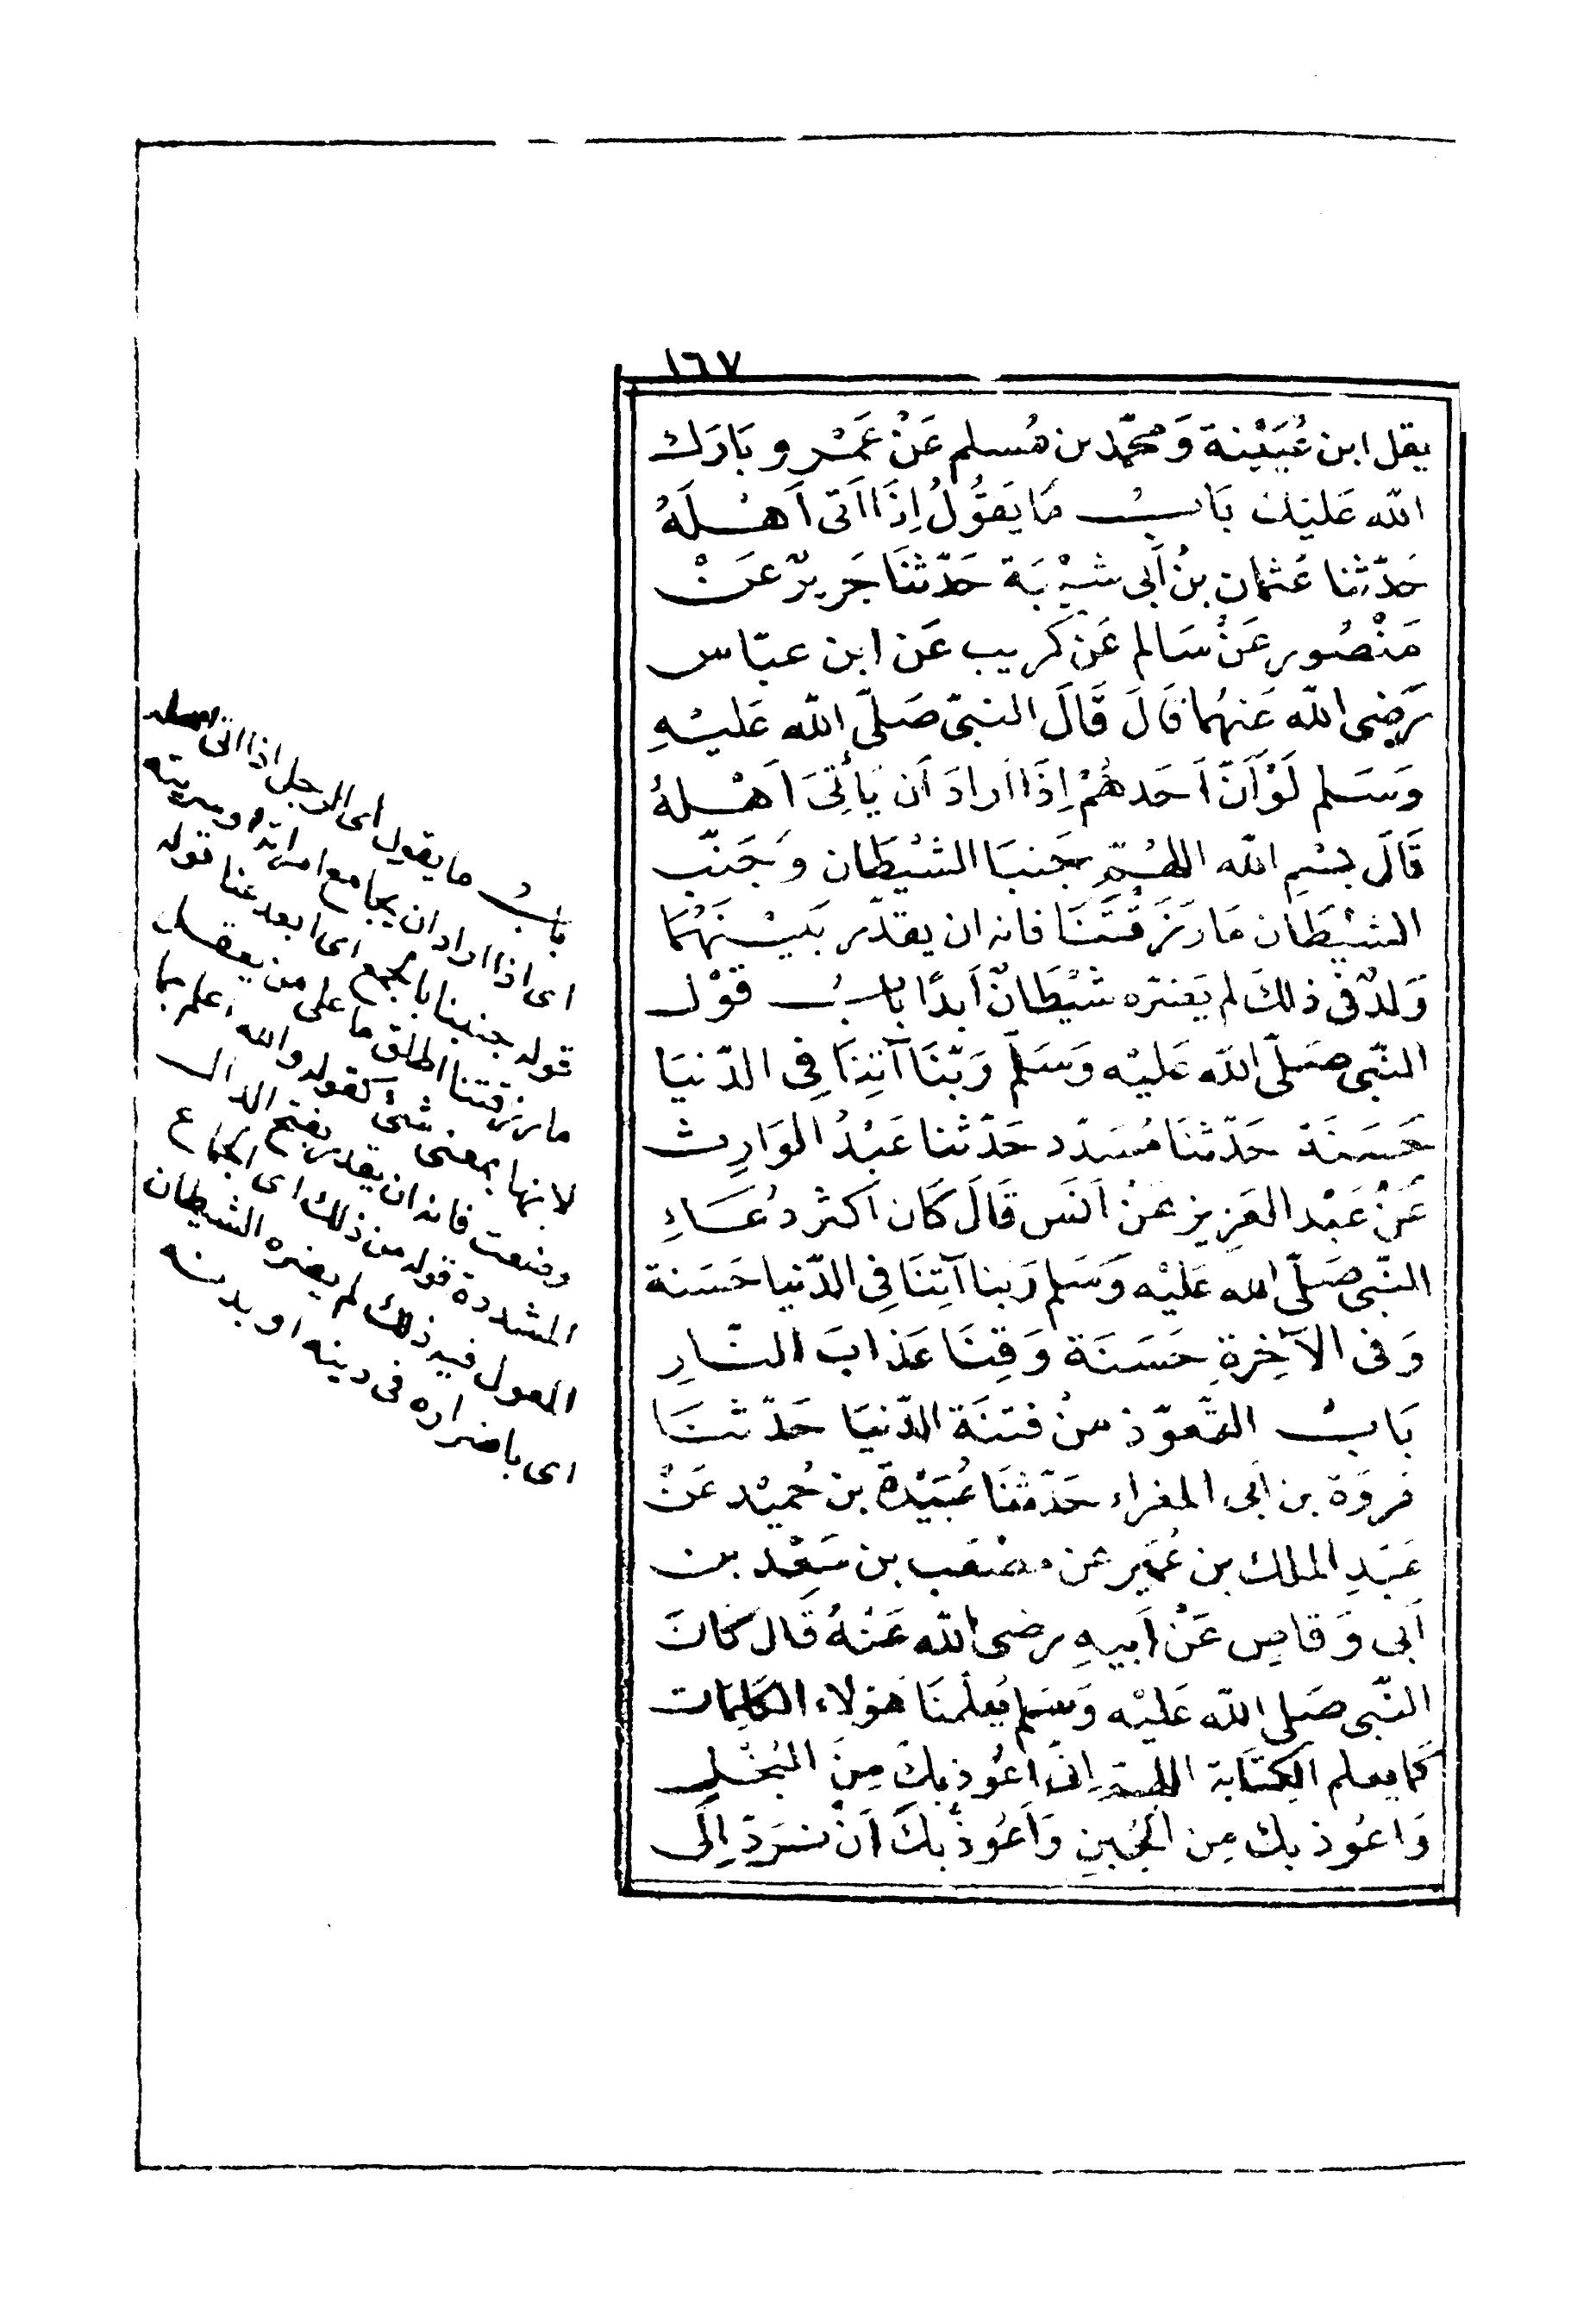 ١٦٧
يقل ابن عُيَيْنة وَمحمّد بن مُسلم عَنْ عَمْرو بَارَك
الله عَليك بَابُ مَا يَقُولُ اِذَا اَتى اَهْلَهُ
حَدّثنا عُثمان بنُ اَبى شَيْبَة حَدّثنَا جَرِيرٌ عَنْ
مَنْصُور عَنْ سَالم عَنْ كريب عَن ابن عبّاس
رَضِى الله عَنهُمَا قَالَ قَالَ النبىّ صَلّى الله عَليْهِ
وَسَلم لَوْ اَنّ اَحَدهُمْ اِذَا ارادَ اَن يَأتِىَ اَهْلهُ
قَالَ بسْمِ الله اللهُمّ جَنبنَا الشيْطَان وَجَنّب
الشيْطَان مَا رَزَقْتَنَا فانه ان يقدّر بَيْنَهُمَا
وَلدٌ فى ذلكَ لم يَضرّه شَيْطَانٌ اَبدًا بابُ قوْل
النّبى صَلّى الله عَليْه وَسَلّم رَبّنَا آتِنَا فِى الدّنيَا
حَسَنَة حَدّثنَا مُسَدّد حَدّثنا عَبْدُ الوَارِث
عَنْ عَبْد العَزِيز عَنْ اَنَس قَالَ كَان اَكثر دُعَاءِ
النّبى صَلّى الله عَليْه وَسَلم رَبنا آتِنَا فِى الدّنيا حَسَنة
وَفى الآخِرةِ حَسَنَة وَقِنَا عَذابَ النّارِ
بَابُ التّعوّذ منْ فتنَة الدّنيَا حَدّثنَا
فروَة بن اَبى المغراء حَدّثنَا عُبَيْدَة بن حُميْد عَنْ
عَبْدِ الملك بن عُمَيْر عَن مصْعَب بن سَعْد بن
اَبى وَقاصٍ عَنْ اَبيهِ رضى الله عَنْهُ قَال كَانَ
النّبى صَلى الله عَليْه وَسَلم يُعلّمنَا هَؤلاء الكَلِمَات
كمَا يعلم الكِتَابة اللهمّ اِنّى اَعُوذ بكَ مِنَ البُخْلِ
وَاعُوذ بك مِن الجُبنِ وَاَعُوذُ بكَ اَنْ نرَدّ اِلَى
بابُ ما يقول اى الرجل اذا اتى اهله
اى اذا اراد ان يجامع امراته او سريته
قوله جنبنا بالجمع اى ابعد عنا قوله
ما رزقتنا اطلق ما على من يعقل
لانها بمعنى شئ كقوله والله اعلم بما
وضعت فانه ان يقدر بفتح الدال
المشددة قوله من ذلك اى الجماع
المعول فيه ذلك لم يضره الشيطان
اى باضراره فى دينه او بدنه